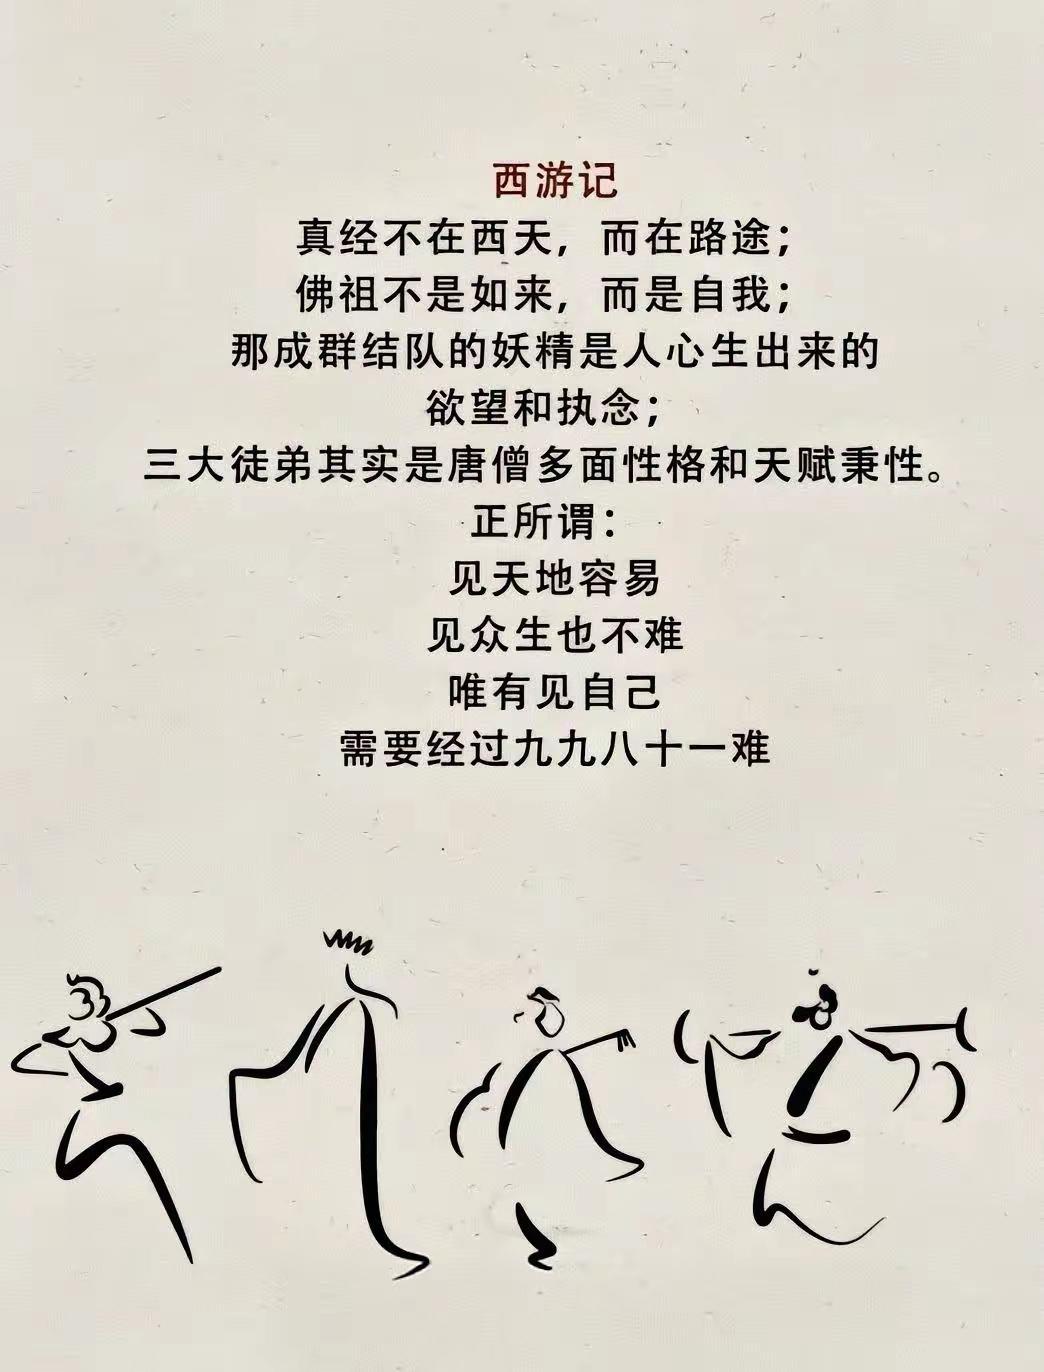 西游记
真经不在西天，而在路途；
佛祖不是如来，而是自我；
那成群结队的妖精是人心生出来的
欲望和执念；
三大徒弟其实是唐僧多面性格和天赋秉性。
正所谓：
见天地容易
见众生也不难
唯有见自己
需要经过九九八十一难